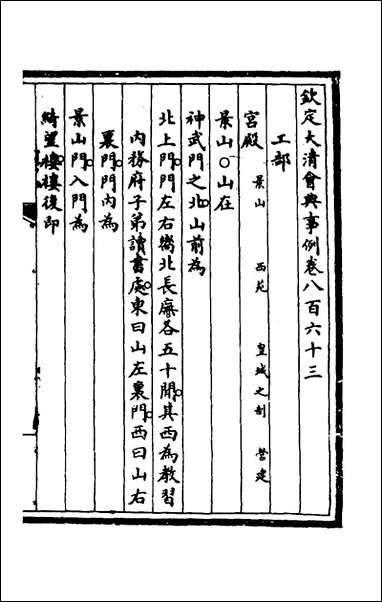 欽定大清會典事例卷八百六十三
工部
宮殿 景山 西苑 皇城之制 營建
景山○山在
神武門之北○山前為
北上門○門左右嚮北長廡各五十閒○其西為教習
內務府子弟讀書處○東曰山左裏門○西曰山右
裏門○門內為
景山門○入門為
綺望樓○樓後即